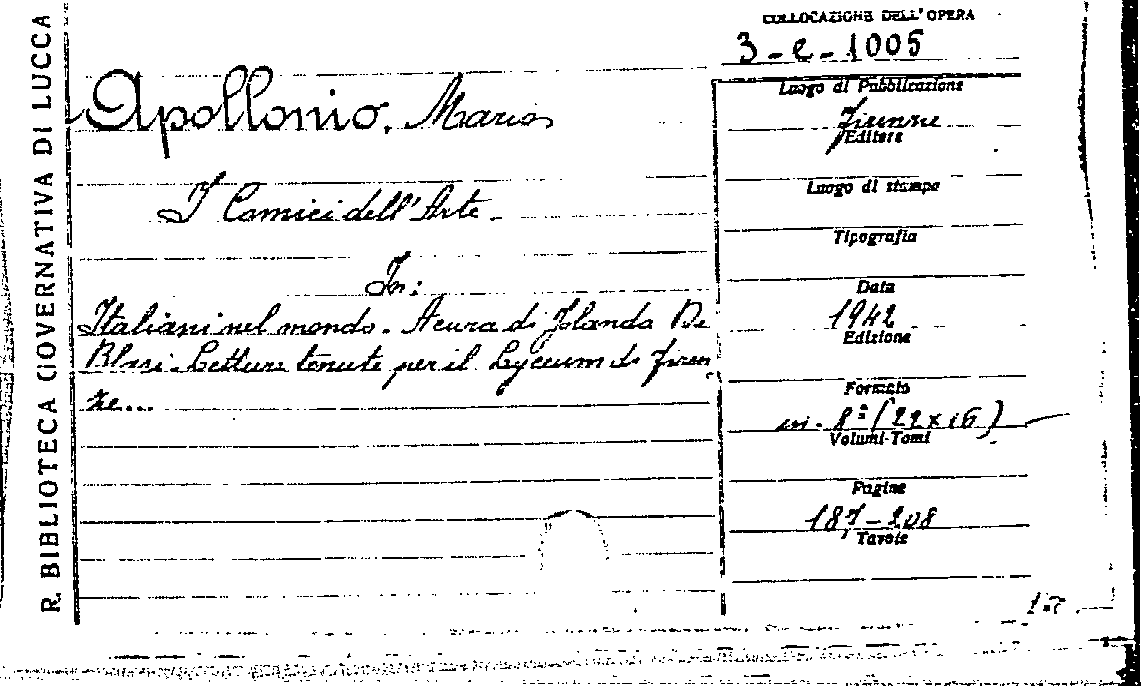 R. BIBLIOTECA GOVERNATIVA DI LUCCA
COLLOCAZIONE DELL'OPERA
3-e-1005
Apollonio, Mario
I Comici dell'Arte.
In:
Italiani nel mondo. A cura di Jolanda De
Blasi. Letture tenute per il Lyceum di Firen
ze...
Luogo di Pubblicazione
Firenze
Editore
Luogo di stampa
Tipografia
Data
1942
Edizione
Formato
in. 8º (22x16)
Volumi-Tomi
Pagine
187-208
Tavole